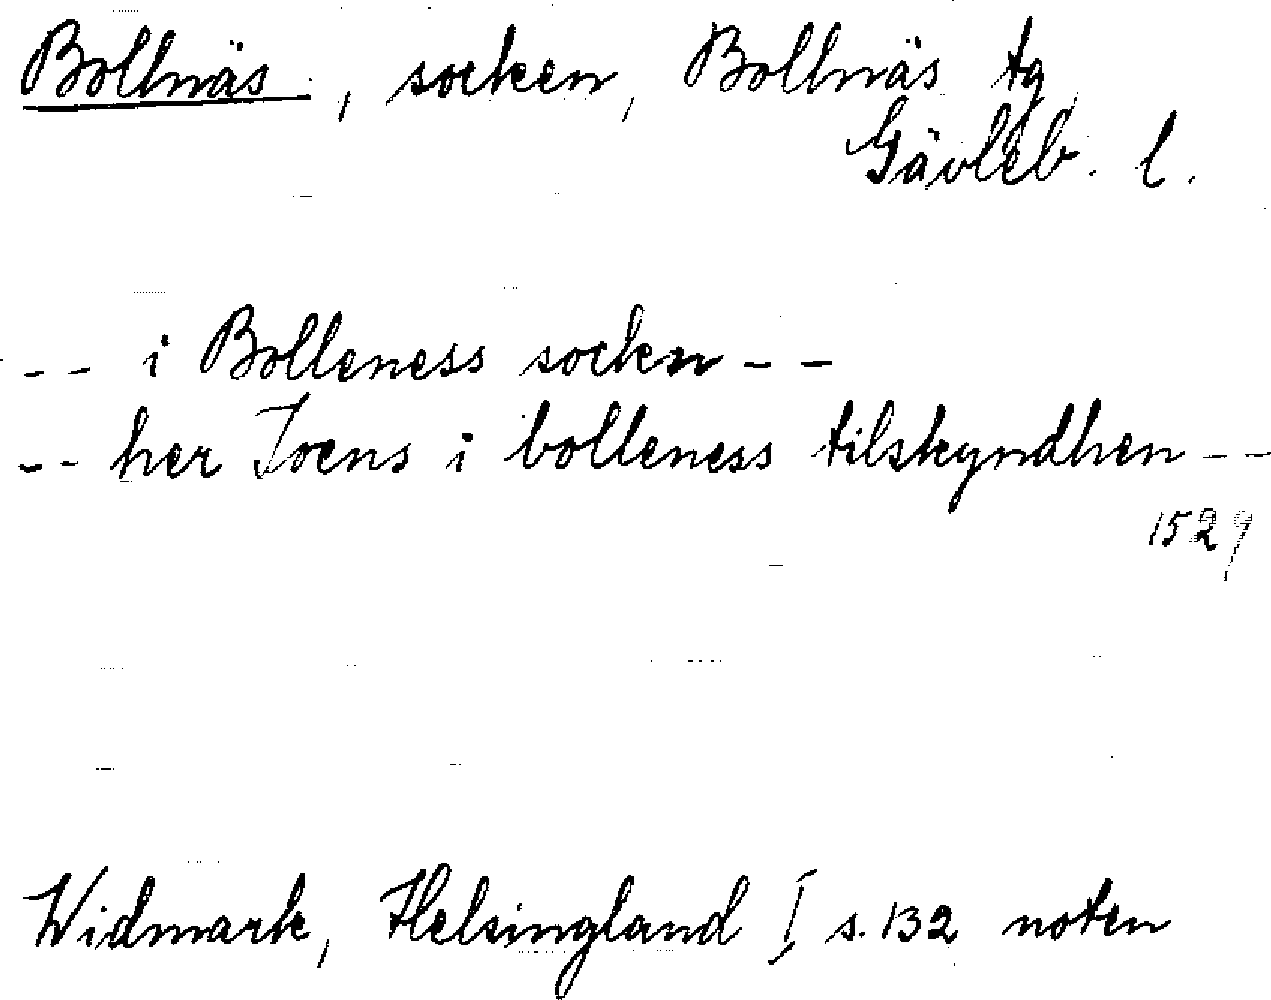 Bollnäs, socken, Bollnäs tg
Gävleb. l.
-- i Bolleness socken --
-- her Joens i bolleness tilskyndhen --
1529
Widmark, Helsingland I s. 132 noten